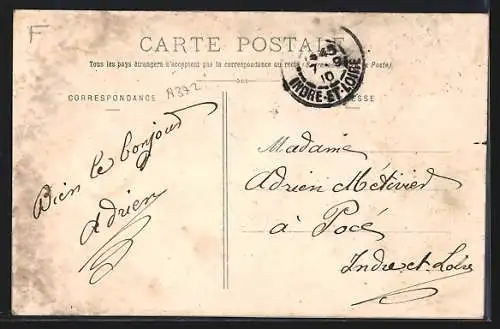 F
CARTE POSTALE
Tous les pays étrangers n'acceptent pas la correspondance au recto
Poste)
CORRESPONDANCE
A372
ESSE
10
INDRE-ET-LOIRE
Bien le bonjour
Adrien
Madame
Adrien Métivier
à Pocé
Indre et Loire